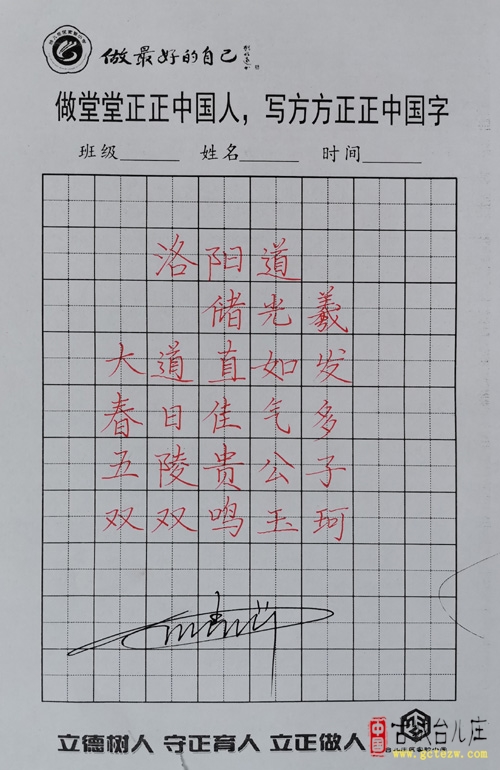 做最好的自己
做堂堂正正中国人，写方方正正中国字
班级______ 姓名______ 时间______
洛阳道
储光羲
大道直如发
春日佳气多
五陵贵公子
双双鸣玉珂
立德树人 守正育人 立正做人
中国
古台儿庄
www.gctezw.com